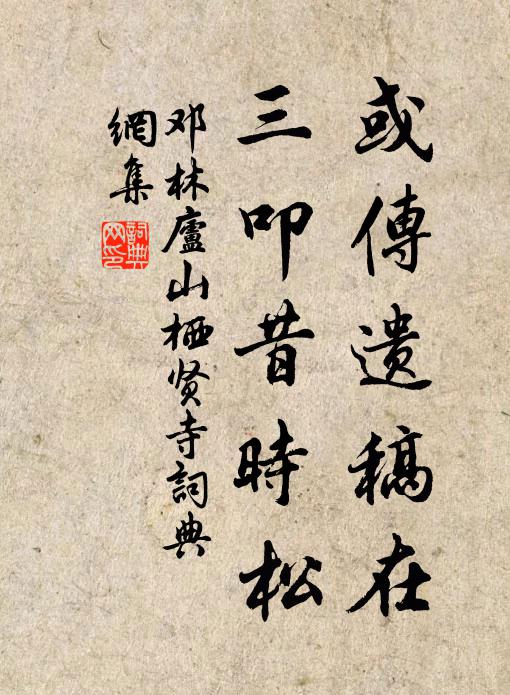 或傳遗稿在
三叩昔時松
邓林廬山栖贤寺詞典
網集
詞典
网印